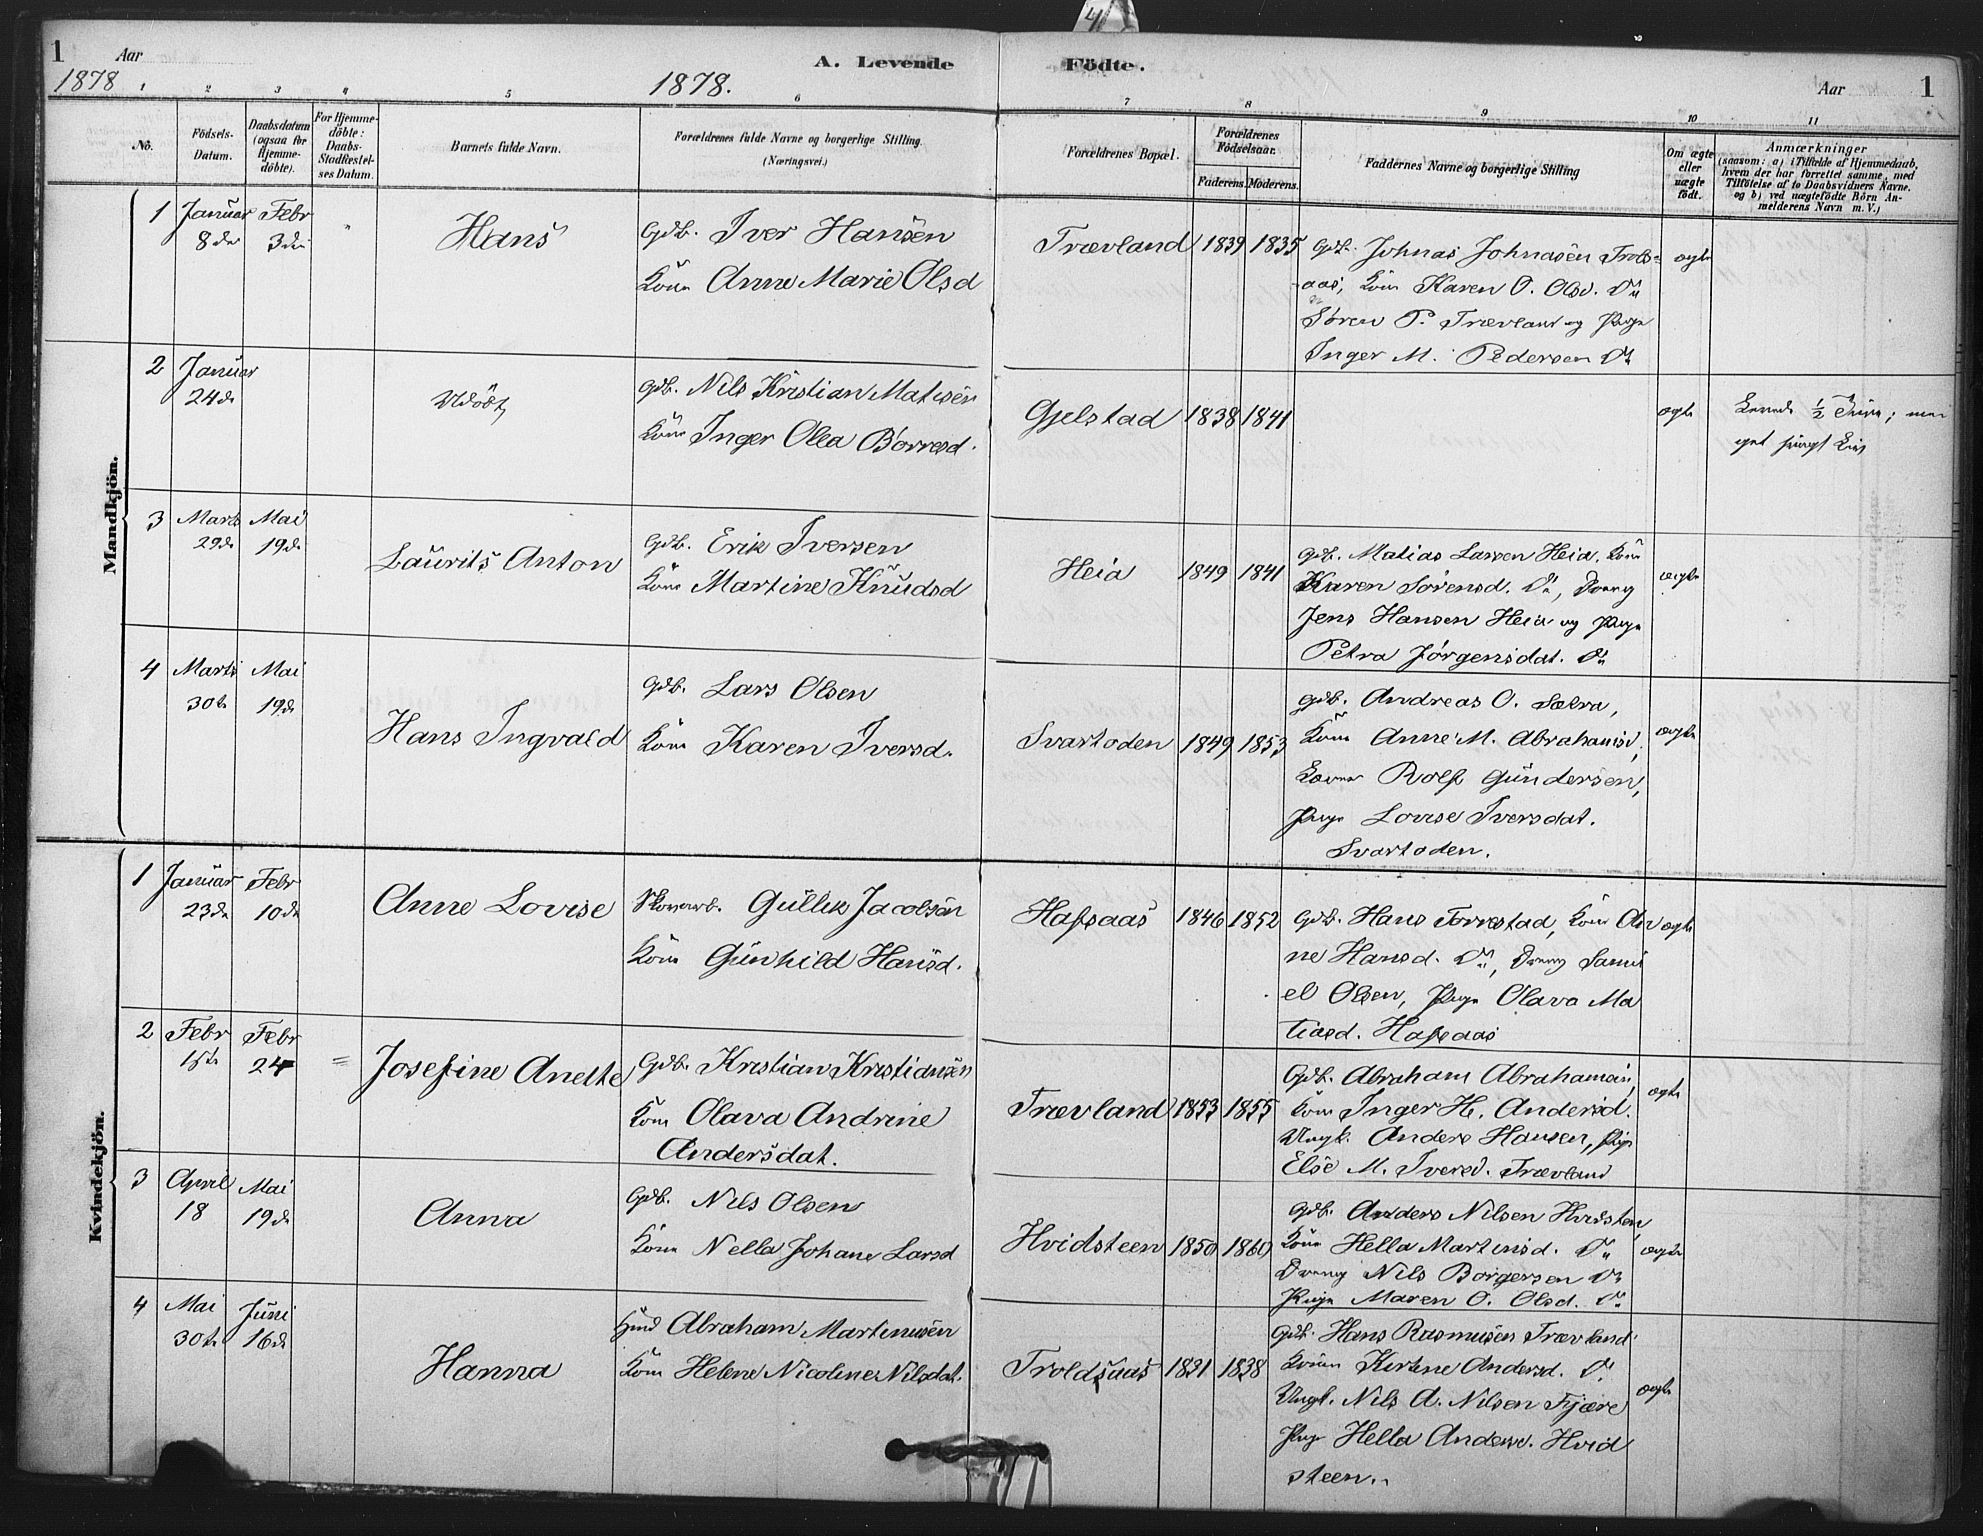 4
1 Aar A. Levende Födte. Aar 1
1878 1878.
1 2 3 4 5 6 7 8 9 10 11
No.
Födsels-
Datum.
Daabsdatum
(ogsaa for
Hjemme-
döbte).
For Hjemme-
döbte:
Daabs-
Stadfæstel-
ses Datum.
Barnets fulde Navn.
Forældrenes fulde Navne og borgerlige Stilling.
(Næringsvei.)
Forældrenes Bopæl.
Forældrenes
Födselsaar.
Faderens. Moderens.
Faddernes Navne og borgerlige Stilling
Om ægte
eller
uægte
født.
Anmærkninger
(saasom: a) i Tilfælde af Hjemmedaab,
hvem der har forrettet samme, med
Tilföielse af to Daabsvidners Navne.
og b) ved uægtefödte Börn An-
melderens Navn m. V.)
Mandkjön.
1 Januar 8de Febr 3die " Hans
Gdb. Iver Hansen
Kone Anne Marie Olsd
Trævland 1839 1835
Gdb. Johnas Johnasen Trols-
aas, Kone Karen O. Olsd. Do
Søren P. Trævland og Pige
Inger M. Pedersen Do
ægte
2 Januar 24de Udöbt
Gdb. Nils Kristian Matisen
Kone Inger Olea Borresd.
Gjelstad 1838 1841
ægte
Levede ½ Time; me
get svagt Liv
3 Marts 29de Mai 19de Laurits Anton
Gdb. Erik Iversen
Kone Martine Knudsd
Heia 1849 1841
Gdb. Matias Larsen Heia, Kone
Karen Sørensd. Do, Dreng
Jens Hansen Heia og Pige
Petra Jørgensdat. Do
ægte
4 Marts 30te Mai 19de Hans Ingvald
Gdb. Lars Olsen
Kone Karen Iversd.
Svartoden 1849 1853
Gdb. Andreas O. Sælra,
Kone Anne M. Abrahamsd,
Rolf Gundersen,
Pige Lovise Iversdat.
Svartoden.
ægte
Kvindekjön.
1 Januar 23de Febr 10de Anne Lovise
Skovarb. Gullik Jacobsen
Kone Gunhild Hansd.
Hafsaas 1846 1852
Gdb. Hans Torrestad, Kone An
ne Hansd. Do, Dreng Samu
el Olsen, Pige Olava Ma
tiasd. Hafsaas
ægte
2 Febr 15de Febr 24 = Josefine Anette
Gdb. Kristian Kristiansen
Kone Olava Andrine
Andersdat.
Trævland 1853 1855
Gdb. Abraham Abrahamsen,
Kone Inger H. Andersd.
Ungk. Anders Hansen, Pige
Else M. Iversd. Trævland
ægte
3 April 18 Mai 19de Anna
Gdb. Nils Olsen
Kone Nella Johane Larsd
Hvidsteen 1850 1860
Gdb. Anders Nilsen Hvidsten,
Kone Hella Martinsd. Do
Dreng Nils Borgersen Do
Pige Maren O. Olsd. Do
ægte
4 Mai 30te Juni 16de Hanna
Hmd Abraham Martinusen
Kone Helene Nicoline Nilsdat.
Troldsaas 1831 1838
Gdb. Hans Rasmusen Trævland
Konen Kirtine Andersd. Do
Ungk. Nils A. Nilsen Fjære
Pige Hella Andersd. Hvid
steen.
ægte